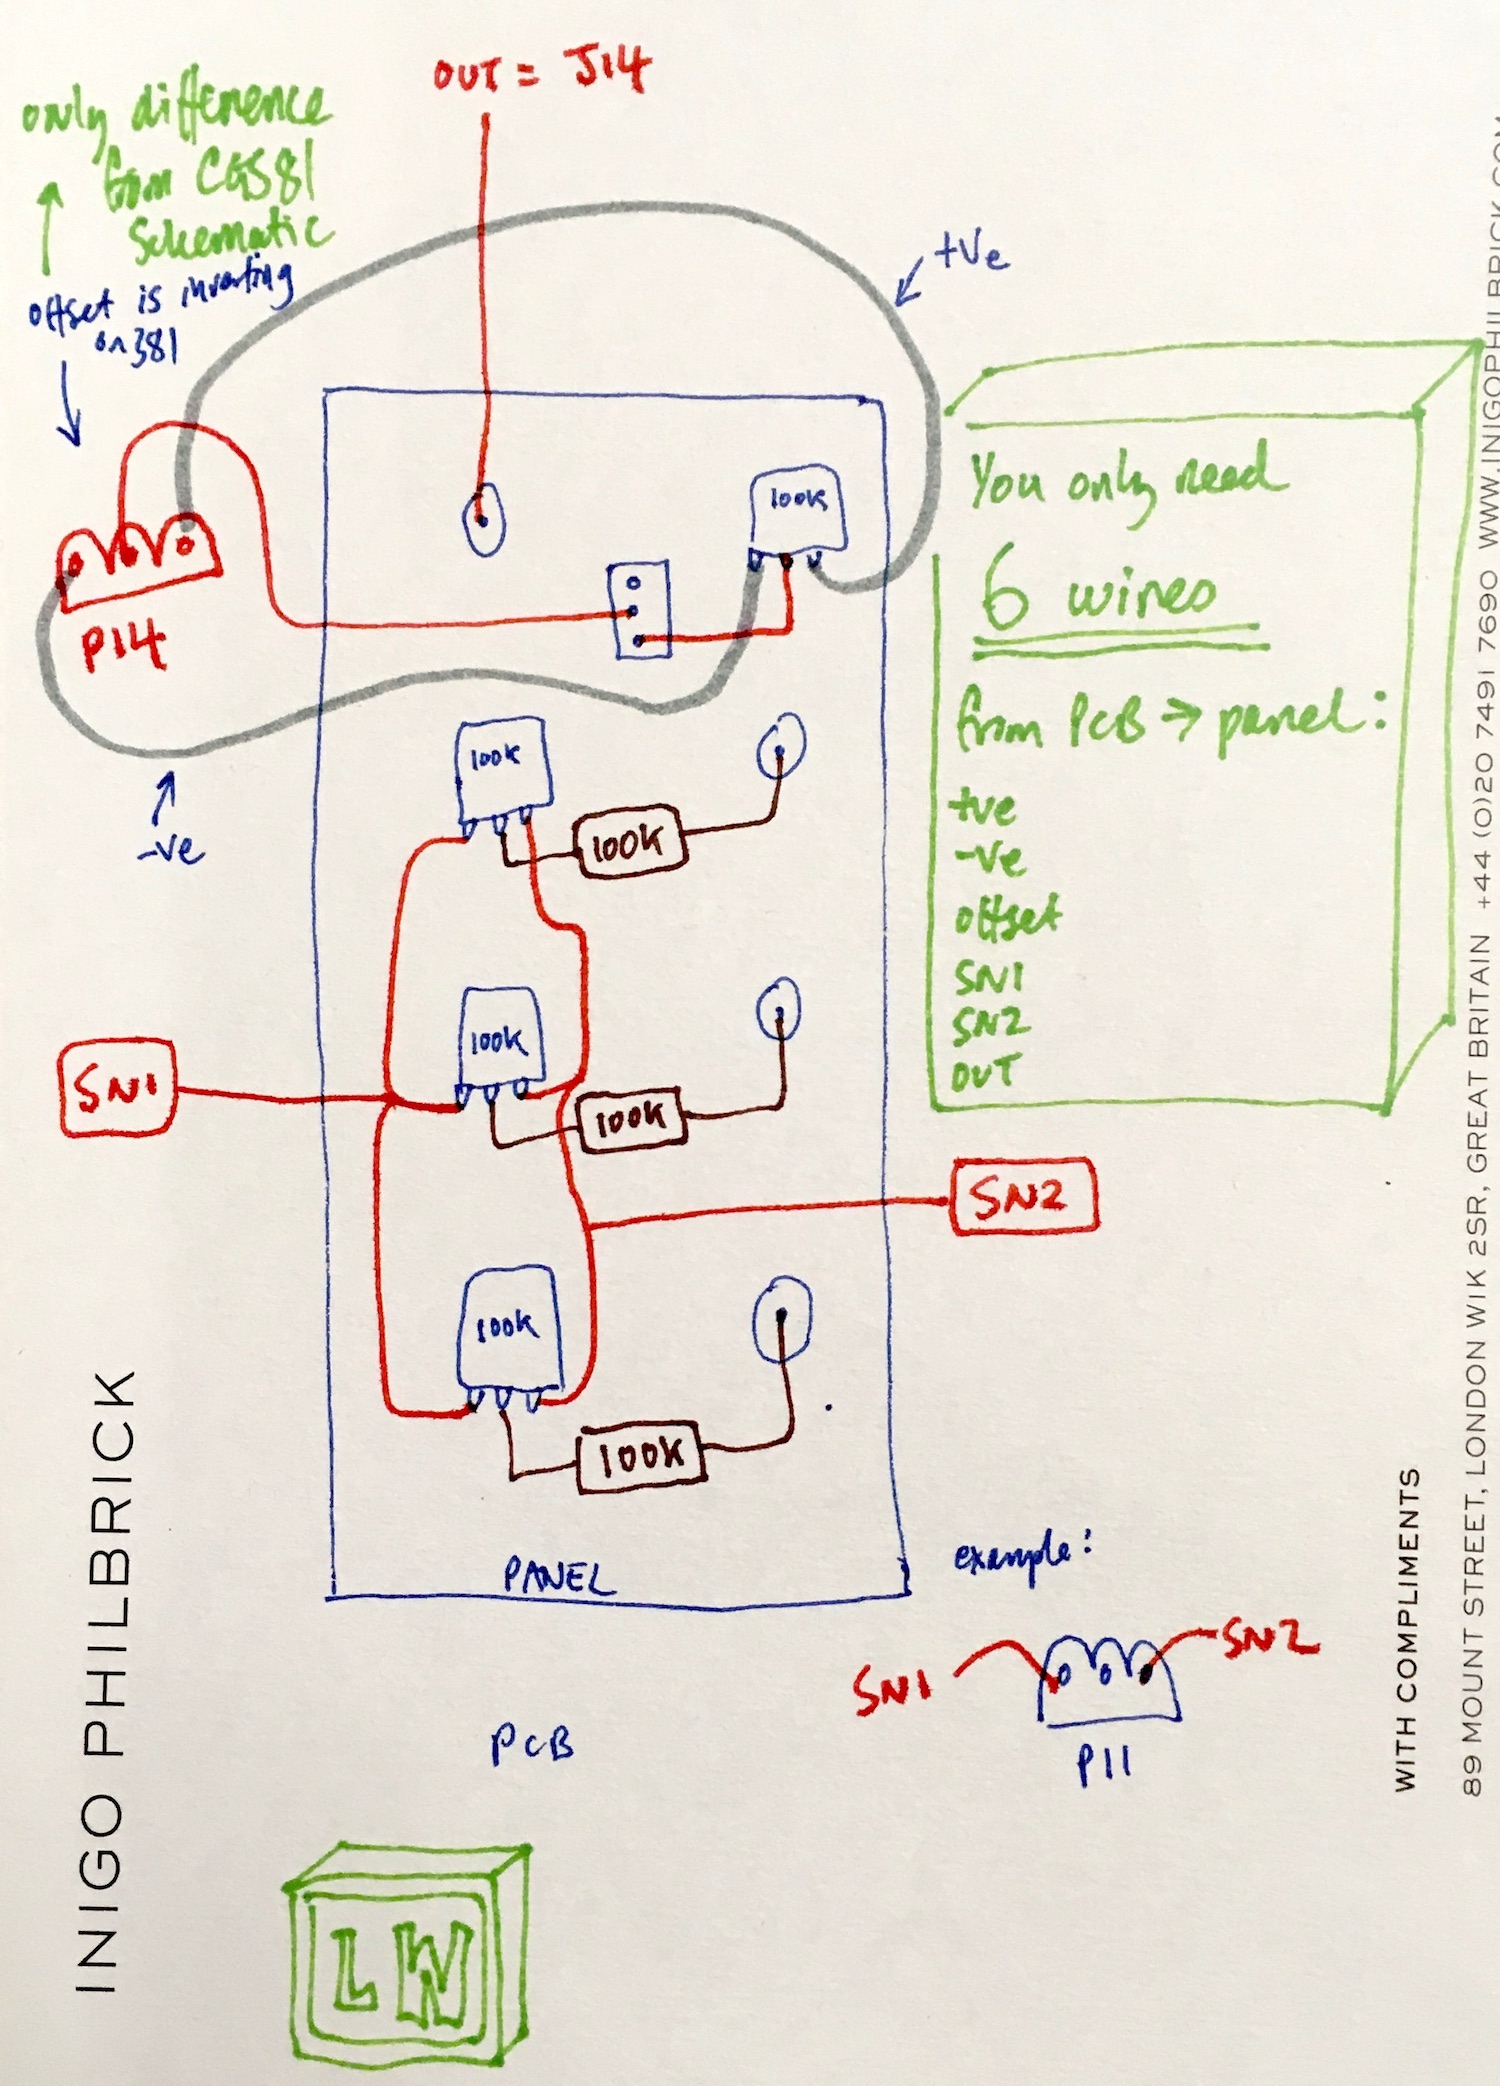 OUT = J14
only difference
from CGS81
schematic
offset is inverting
on 381
+Ve
100K
P14
-Ve
You only need
6 wires
from PCB → panel:
+ve
-ve
offset
SN1
SN2
OUT
100K
100K
100K
100K
SN1
SN2
100K
100K
PANEL
example:
SN1
SN2
P11
PCB
LW
INIGO PHILBRICK
WITH COMPLIMENTS
89 MOUNT STREET, LONDON W1K 2SR, GREAT BRITAIN +44 (0)20 7491 7690 WWW.INIGOPHILBRICK.COM